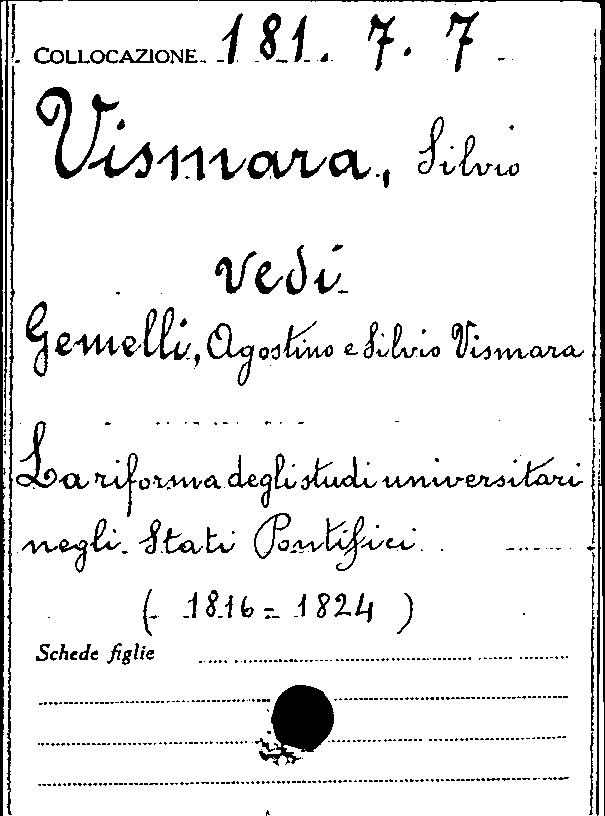 COLLOCAZIONE 181. 7. 7
Vismara, Silvio
vedi
Gemelli, Agostino e Silvio Vismara
La riforma degli studi universitari
negli Stati Pontifici
( 1816 = 1824 )
Schede figlie